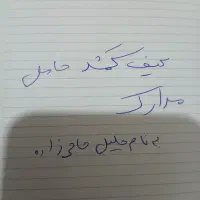 کیف گمشد حامل
مدارک
به نام جلیل حاجی زاده